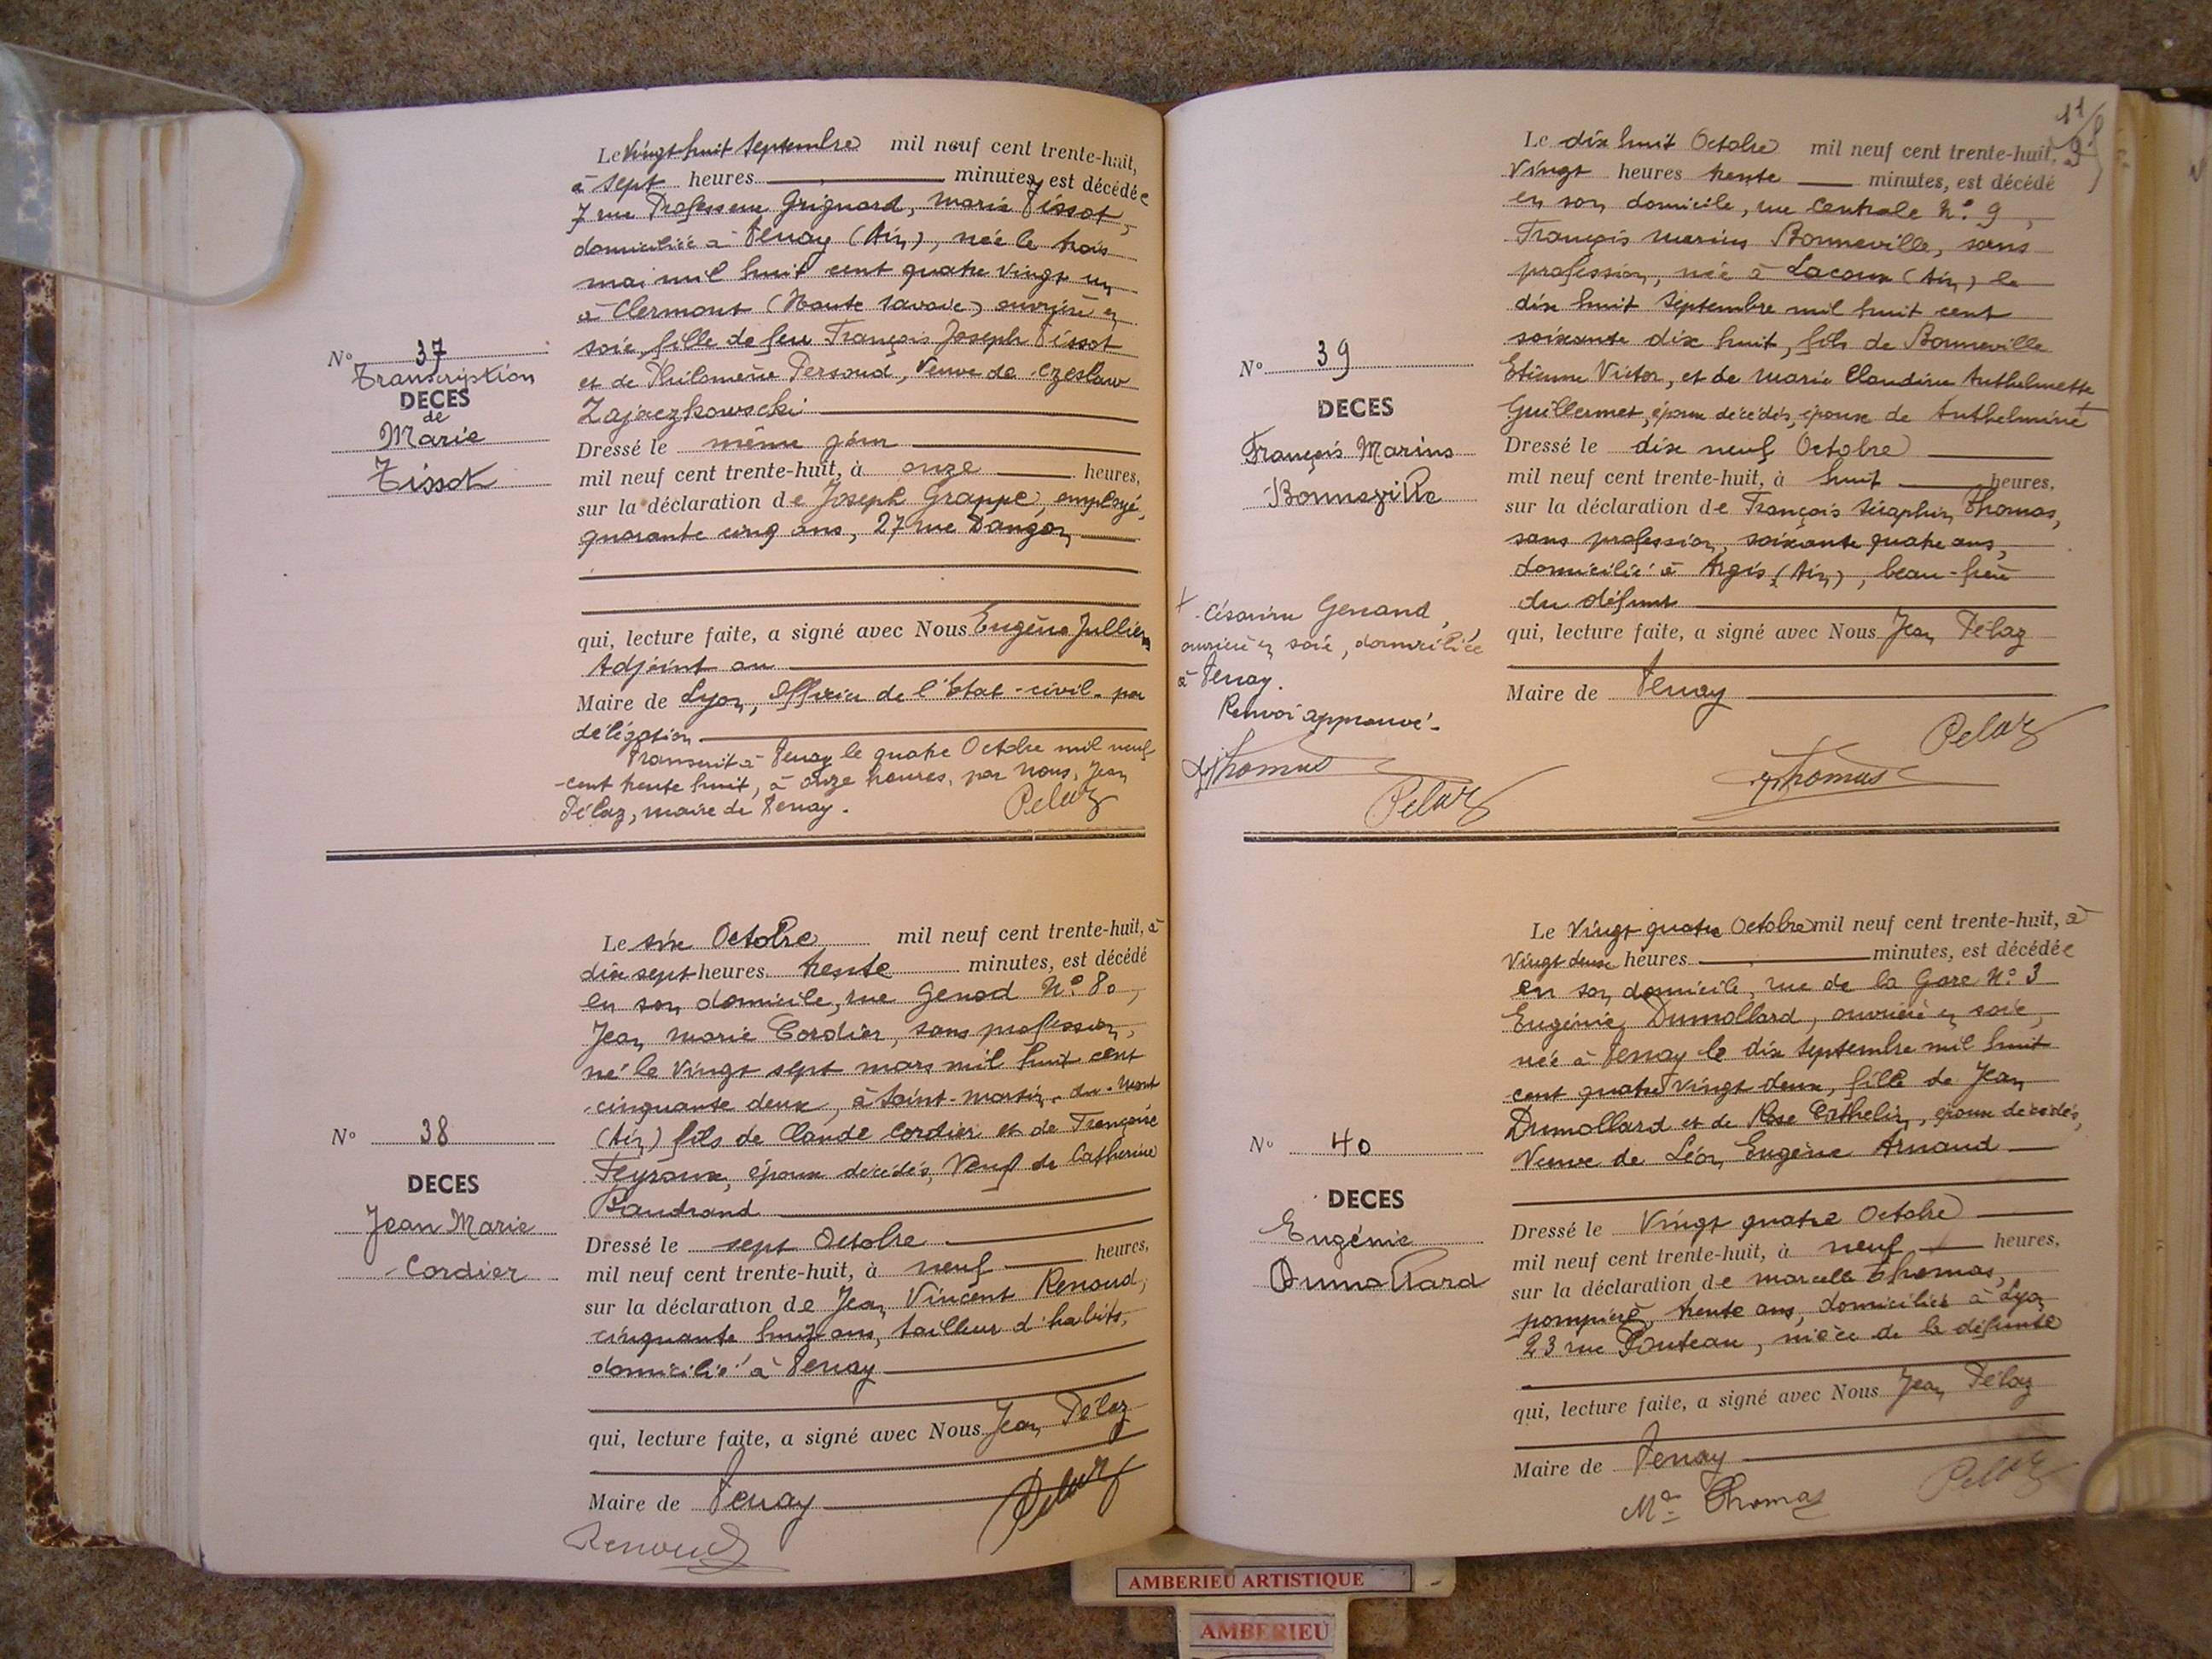 Le Vingt huit Septembre mil neuf cent trente-huit,
à sept heures minutes, est décédée
7 rue Professeur Grignard, Marie Tissot,
domiciliée à Tenay (Ain), née le trois
mai mil huit cent quatre vingt un
à Clermont (Haute Savoie) ouvrière en
soie, fille de feu François Joseph Tissot
et de Philomène Persoud, Veuve de Czeslaw
Zajaczkowscki
Nº 37
Transcription
DECES
de
Marie
Tissot
Dressé le même jour
mil neuf cent trente-huit, à onze heures,
sur la déclaration de Joseph Grappe, employé,
quarante cinq ans, 27 rue Dangon
qui, lecture faite, a signé avec Nous Eugène Jullien
Adjoint au
Maire de Lyon, Officier de l'Etat-civil par
délégation
Transcrit à Tenay le quatre Octobre mil neuf
cent trente huit, à onze heures, par Nous, Jean
Pélaz, maire de Tenay.
Pelaz
Le six Octobre mil neuf cent trente-huit, à
dix sept heures trente minutes, est décédé
en son domicile, rue Genod Nº 80,
Jean Marie Cordier, sans profession,
né le Vingt sept mars mil huit cent
cinquante deux, à Saint-Martin-du-Mont
(Ain) fils de Claude Cordier et de Françoise
Feyroux, époux décédés, Veuf de Catherine
Baudrand
Nº 38
DECES
Jean Marie
Cordier
Dressé le sept Octobre
mil neuf cent trente-huit, à neuf heures,
sur la déclaration de Jean Vincent Renoud,
cinquante huit ans, tailleur d'habits,
domicilié à Tenay
qui, lecture faite, a signé avec Nous Jean Pélaz
Maire de Tenay
Pelaz
Renoud
11
Le dix huit Octobre mil neuf cent trente-huit, à
Vingt heures trente minutes, est décédé
en son domicile, rue Centrale Nº 9,
François Marius Bonneville, sans
profession, née à Lacoux (Ain) le
dix huit Septembre mil huit cent
soixante dix huit, fils de Bonneville
Etienne Victor, et de Marie Claudine Anthelmette
Guillermet, époux décédés, époux de Anthelmine +
Nº 39
DECES
François Marius
Bonneville
Dressé le dix neuf Octobre
mil neuf cent trente-huit, à huit heures,
sur la déclaration de François Séraphin Thomas,
sans profession, soixante quatre ans,
domicilié à Argis (Ain), beau-frère
du défunt
qui, lecture faite, a signé avec Nous Jean Pélaz
Maire de Tenay
+ Césarine Genand,
ouvrière en soie, domiciliée
à Tenay.
Renvoi approuvé.
Thomas
Pelaz
Thomas
Pelaz
Le Vingt quatre Octobre mil neuf cent trente-huit, à
Vingt deux heures minutes, est décédée
en son domicile, rue de la Gare Nº 3
Eugénie Dumollard, ouvrière en soie,
née à Tenay le dix Septembre mil huit
cent quatre vingt deux, fille de Jean
Dumollard et de Rose Berthelin, époux décédés,
Veuve de Léon Eugène Arnaud
Nº 40
DECES
Eugénie
Dumollard
Dressé le Vingt quatre Octobre
mil neuf cent trente-huit, à neuf heures,
sur la déclaration de Marcelle Thomas,
pompière, trente ans, domiciliée à Lyon
23 rue Pouteau, nièce de la défunte
qui, lecture faite, a signé avec Nous Jean Pélaz
Maire de Tenay
Pelaz
Mᵃ Thomas
AMBERIEU ARTISTIQUE
AMBERIEU